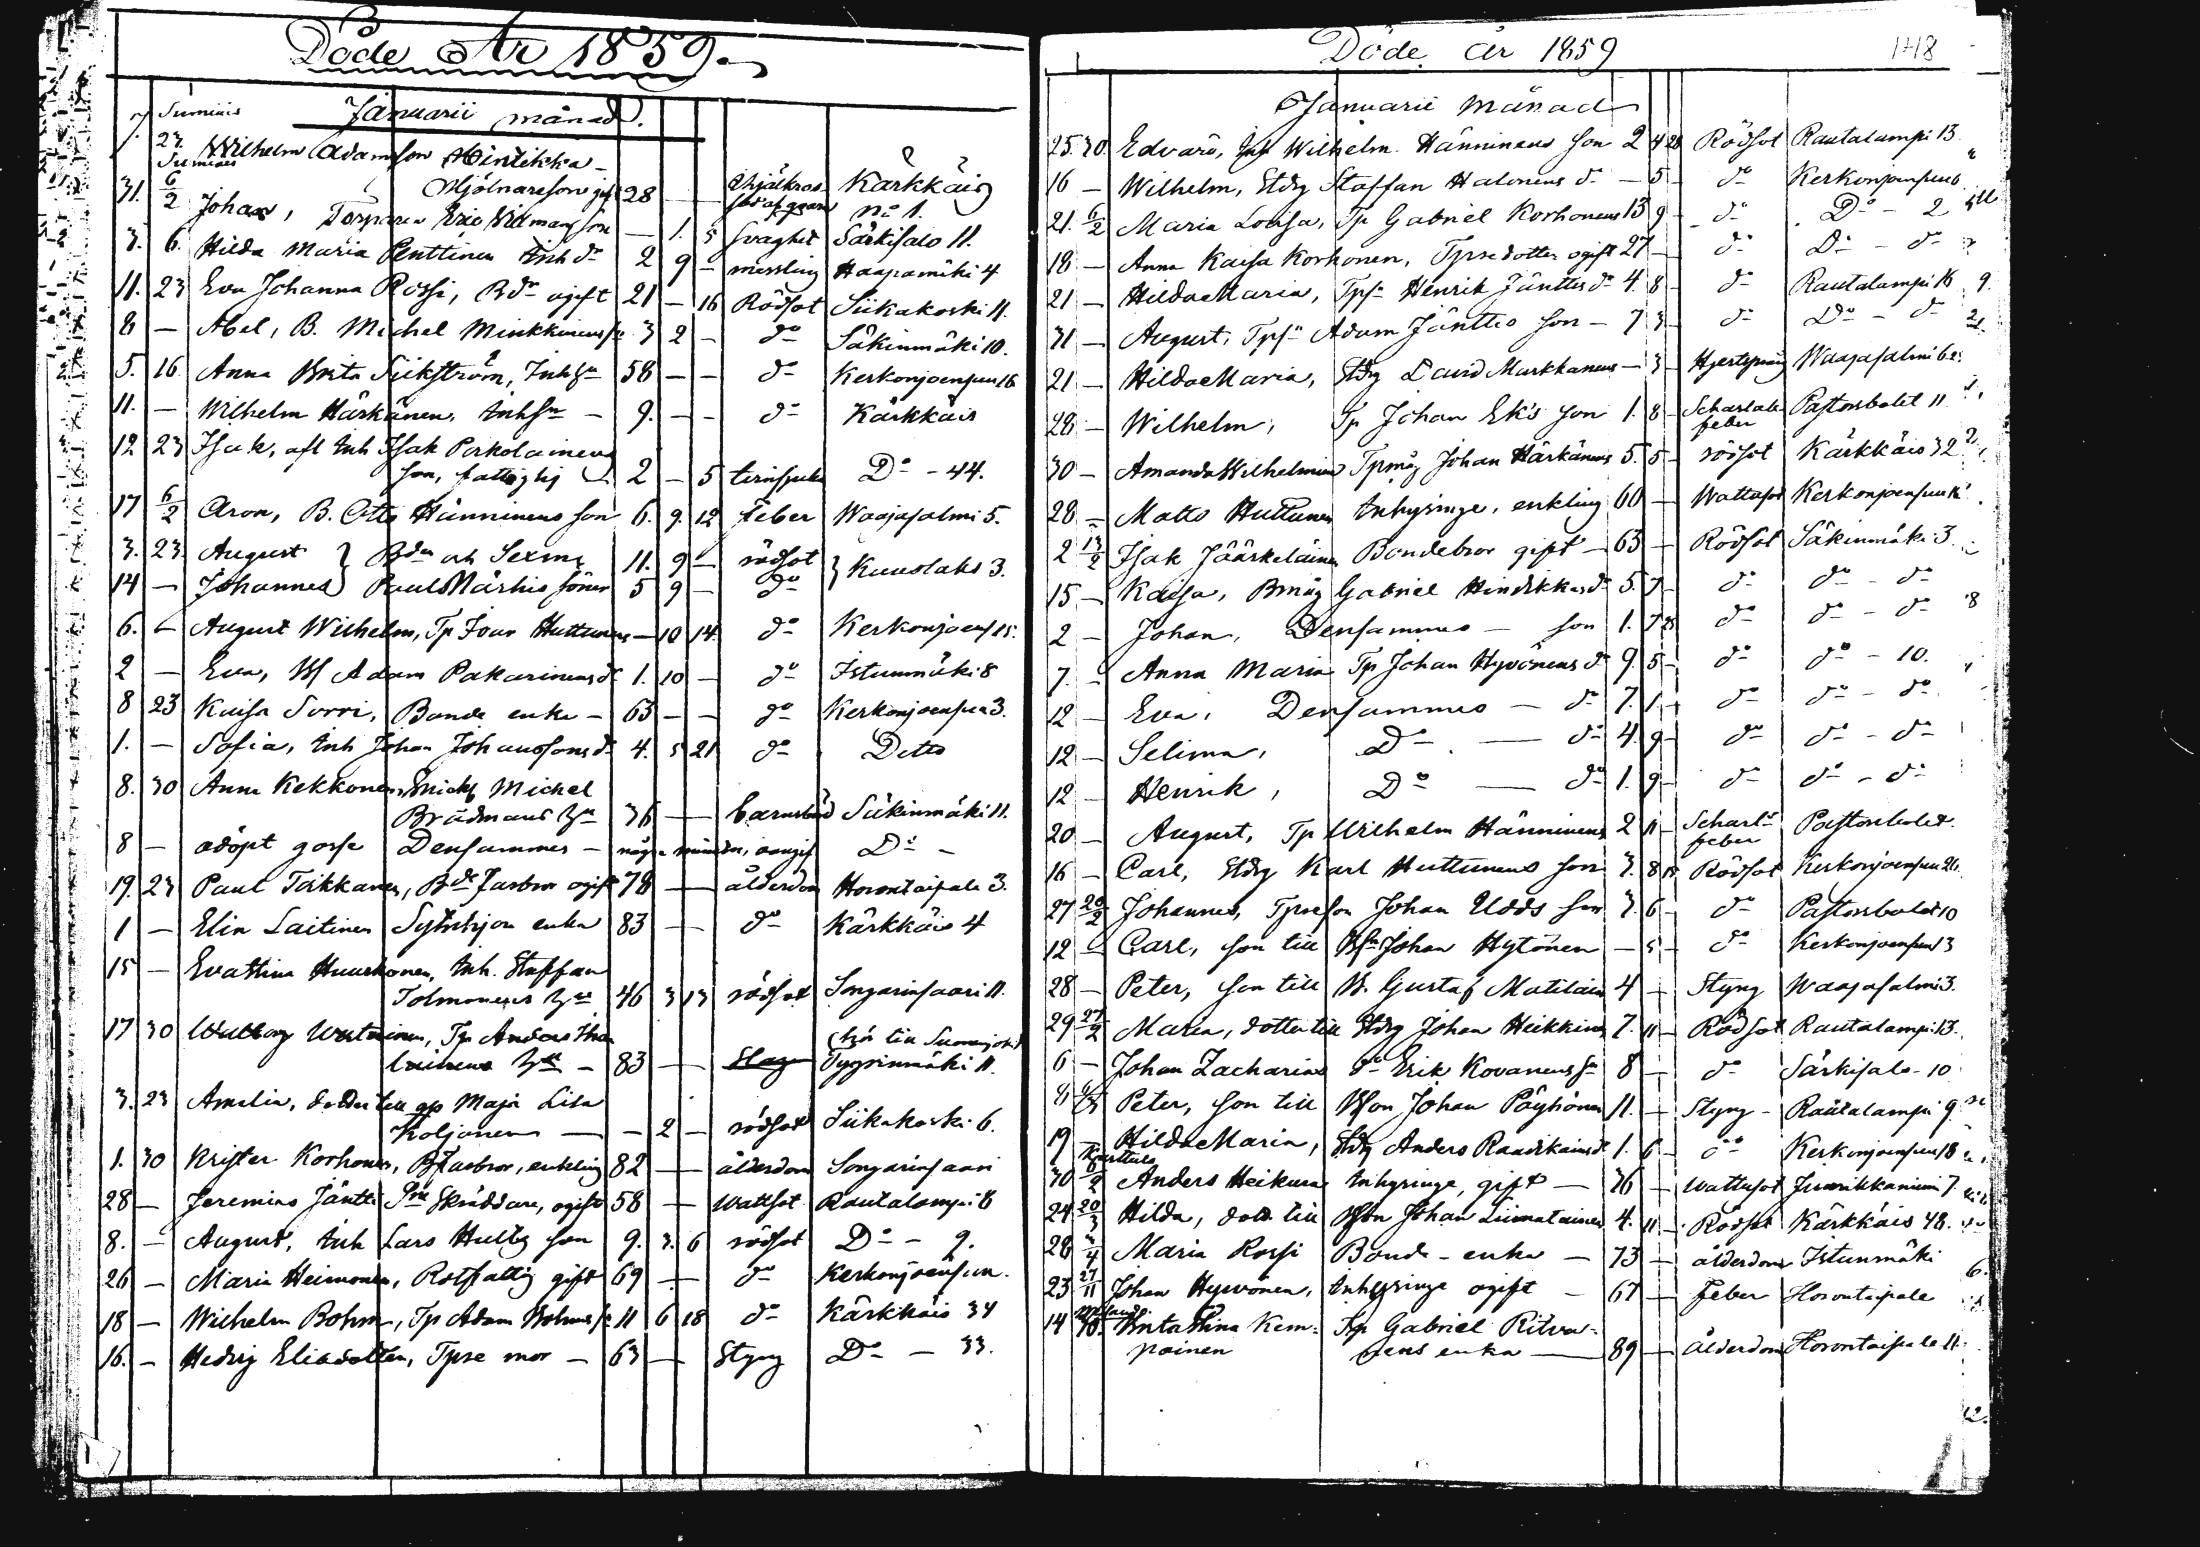 Döde År 1859.
Januarii månad.
7. Sumiais 23. Wilhelm Adamsson Hintikka
Mjölnareson gift 28 — ihjälkros Kärkkäis
Sumiais
31. 6/2 Johan, Torparen Eric Vidmans son — 1. 5 Svaghet Särkisalo 11.
3. 6. Hilda Maria Penttinen Inh dr 2 9 — messling Haapamäki 4
11. 23 Eva Johanna Rossi, Bdr ogift 21 — 16 Rödsot Siikakoski 11.
8 — Abel, B. Michel Minkkinens sn 3 2 — do Säkinmäki 10.
5. 16 Anna Brita Siikström, Inh hu 58 — — do Kerkonjoensuu 16
11. — Wilhelm Härkänen, Inh sn — 9. — — do Kärkkäis
12 23 Isak, afl Inh Isak Porkolainens
son, fattighj 2 — 5 do — 44.
17 6/2 Aron, B. Otto Hänninens son 6. 9. 12 Feber Waajasalmi 5.
3. 23. August } Bdn och Sexm 11. 9 — rödsot } Kuuslaks 3.
14 — Johannes } Pauls Närhis söner 5 9 — do
6. — August Wilhelm, Tp Huttunens — 10 14. do Kerkonjoens 15.
2 — Eva, Adam Pakarinens dr 1. 10 — do Istunmäki 8
8 23 Kaisa Sorri, Bonde enka — 63 — — do Kerkonjoensuu 3.
1. — Sofia, Inh Johan Johanssons dr 4. 5 21 do Ditto
8. 30 Anna Kekkonen, Snickr Michel
Brädmans hu 36 — barnsbörd Säkinmäki 11.
8 — odöpt gosse Densammes — några minuter, Do —
19. 23 Paul Toikkanen, Bde farbror ogift 78 — ålderdom Horontaipale 3.
1 — Elin Laitinen Sytnhjon enka 83 — do Kärkkäis 4
15 — Eva Stina Huuskonen, Inh. Staffan
Tolmonens hu 46 3 13 rödsot Songarinsaari 11.
17 30 Walborg Wartiainen, Tp Anders
hu — 83 — Slag (hör till Suonenjoki) Dyyrinmäki 11.
3. 23 Amalia, dotter till gp Maja Lisa
Koljonen — — 2 — rödsot Siikakoski 6.
1. 30 Krister Korhonen, B farbror, enkling 82 — ålderdom Songarinsaari
28 — Jeremias Jäntti Skräddare, ogift 58 — Wattsot Rautalampi 8
8. — August, Inh Lars Hultz son 9. 3. 6 rödsot Do — 9.
26 — Maria Heimonen, Rotfattig gift 69 — do Kerkonjoensuu.
18 — Wilhelm Bohm, Tp Adam Bohms sn 11 6 18 do Kärkkäis 34
16. — Hedvig Eliadotter, Tpre mor — 63 — Styng Do — 33.
Döde år 1859 148
Januarii månad
25. 30. Edvard, Wilhelm Hänninens son 2 4 28 Rödsot Rautalampi 13
16 — Wilhelm, Stdrg Staffan Halonens dr — 5 — do Kerkonjoensuu 6
21. 6/2 Maria Lovisa, Tp Gabriel Korhonens 13 9 — do Do — 2
18 — Anna Kaisa Korhonen, Tpredotter ogift 27 — do Do — do
21 — Hilda Maria, Henrik Jänttis dr 4. 8 — do Rautalampi 18
31 — August, Adam Jänttis son — 7 3 — do Do — do
21 — Hilda Maria, Stdrg David Markkanens — 3 — Hjertspräng Waajasalmi
28 — Wilhelm, Tp Johan Ek's son 1. 8 — Scharlak feber Pastorsbolet 11
30 — Amanda Wilhelmina Tpmåg Johan Härkänens 5. 5 — rödsot Kärkkäis 32
28 — Matts Huttunen Inhysinge, enkling 60 — Wattusot Kerkonjoensuu
2 13/2 Isak Jääskeläinen Bondebror gift — 63 — Rödsot Säkinmäki 3
15 — Kaisa, Bmåg Gabriel Hindikkas dr 5. 7 — do do — do
2 — Johan, Densammes — son 1. 7 28 do do — do
7. — Anna Maria Tp Johan Hyvönens dr 9. 5 — do do — 10.
12 — Eva, Densammes — dr 7. 1. — do do — do
12 — Selima, Do — dr 4. 9 — do do — do
12 — Henrik, Do — dr 1. 9 — do do — do
20 — August, Tp Wilhelm Hänninens 2 11 — Scharl feber Pastorsbolet.
16 — Carl, Stdrg Karl Huttunens son 3. 8 18 Rödsot Kerkonjoensuu 26.
27 20/2 Johannes, Tpreson Johan Udds son 3. 6 — do Pastorsbolet 10
12 — Carl, son till Johan Hytönen — 5 — do Kerkonjoensuu 3
28 — Peter, son till B. Gustaf Matilain 4 — Styng Waajasalmi 3.
29 27/2 Maria, dotter till Stdrg Johan Heikkinen 7. 11 — Rödsot Rautalampi 13.
6 — Johan Zacharias do Erik Kovanens sn 8 — do Särkisalo — 10
Peter, son till Johan Pöyhönen 11. — Styng — Rautalampi 9
19 — Hilda Maria, Stdrg Anders Raudikains dr 1. 6 — do Kerkonjoensuu 18
Karttula
30 6/2 Anders Heikura Inhysinge, gift — 76 — Wattusot Juurikkaniemi 7.
24 20/3 Hilda, dott till Johan Liimatainen 4. 11 — Rödsot Kärkkäis 48.
28 3/4 Maria Rossi Bonde-enka — 73 — ålderdom Istunmäki
23 27/11 Johan Hyvönen, Inhysinge ogift — 67 — Feber Horontaipale
14 10. Anta Stina Kem- Tp Gabriel Ritva-
painen nens enka — 89 — Ålderdom Horontaipale 11.